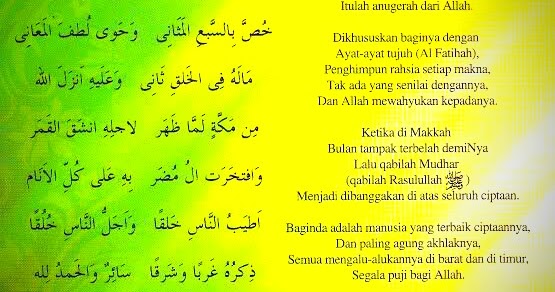 خُصَّ بِالسَّبْعِ الْمَثَانِى وَحَوَى لُطْفَ الْمَعَانِى
مَالَهُ فِى الْخَلْقِ ثَانِى وَعَلَيْهِ اَنْزَلَ الله
مِن مَكَّةٍ لَمَّا ظَهَر لِاَجْلِهِ انْشَقَّ الْقَمَر
وَافْتَخَرَتْ الُ مُضَر بِهِ عَلَى كُلِّ الْاَنَام
اَطْيَبُ النَّاسِ خَلْقًا وَاَجَلُّ النَّاسِ خُلُقًا
ذِكْرُهُ غَرْبًا وَشَرْقًا سَائِرٌ وَالْحَمْدُ لِله
Itulah anugerah dari Allah.
Dikhususkan baginya dengan
Ayat-ayat tujuh (Al Fatihah),
Penghimpun rahsia setiap makna,
Tak ada yang senilai dengannya,
Dan Allah mewahyukan kepadanya.
Ketika di Makkah
Bulan tampak terbelah demiNya
Lalu qabilah Mudhar
(qabilah Rasulullah ﷺ )
Menjadi dibanggakan di atas seluruh ciptaan.
Baginda adalah manusia yang terbaik ciptaannya,
Dan paling agung akhlaknya,
Semua mengalu-alukannya di barat dan di timur,
Segala puji bagi Allah.